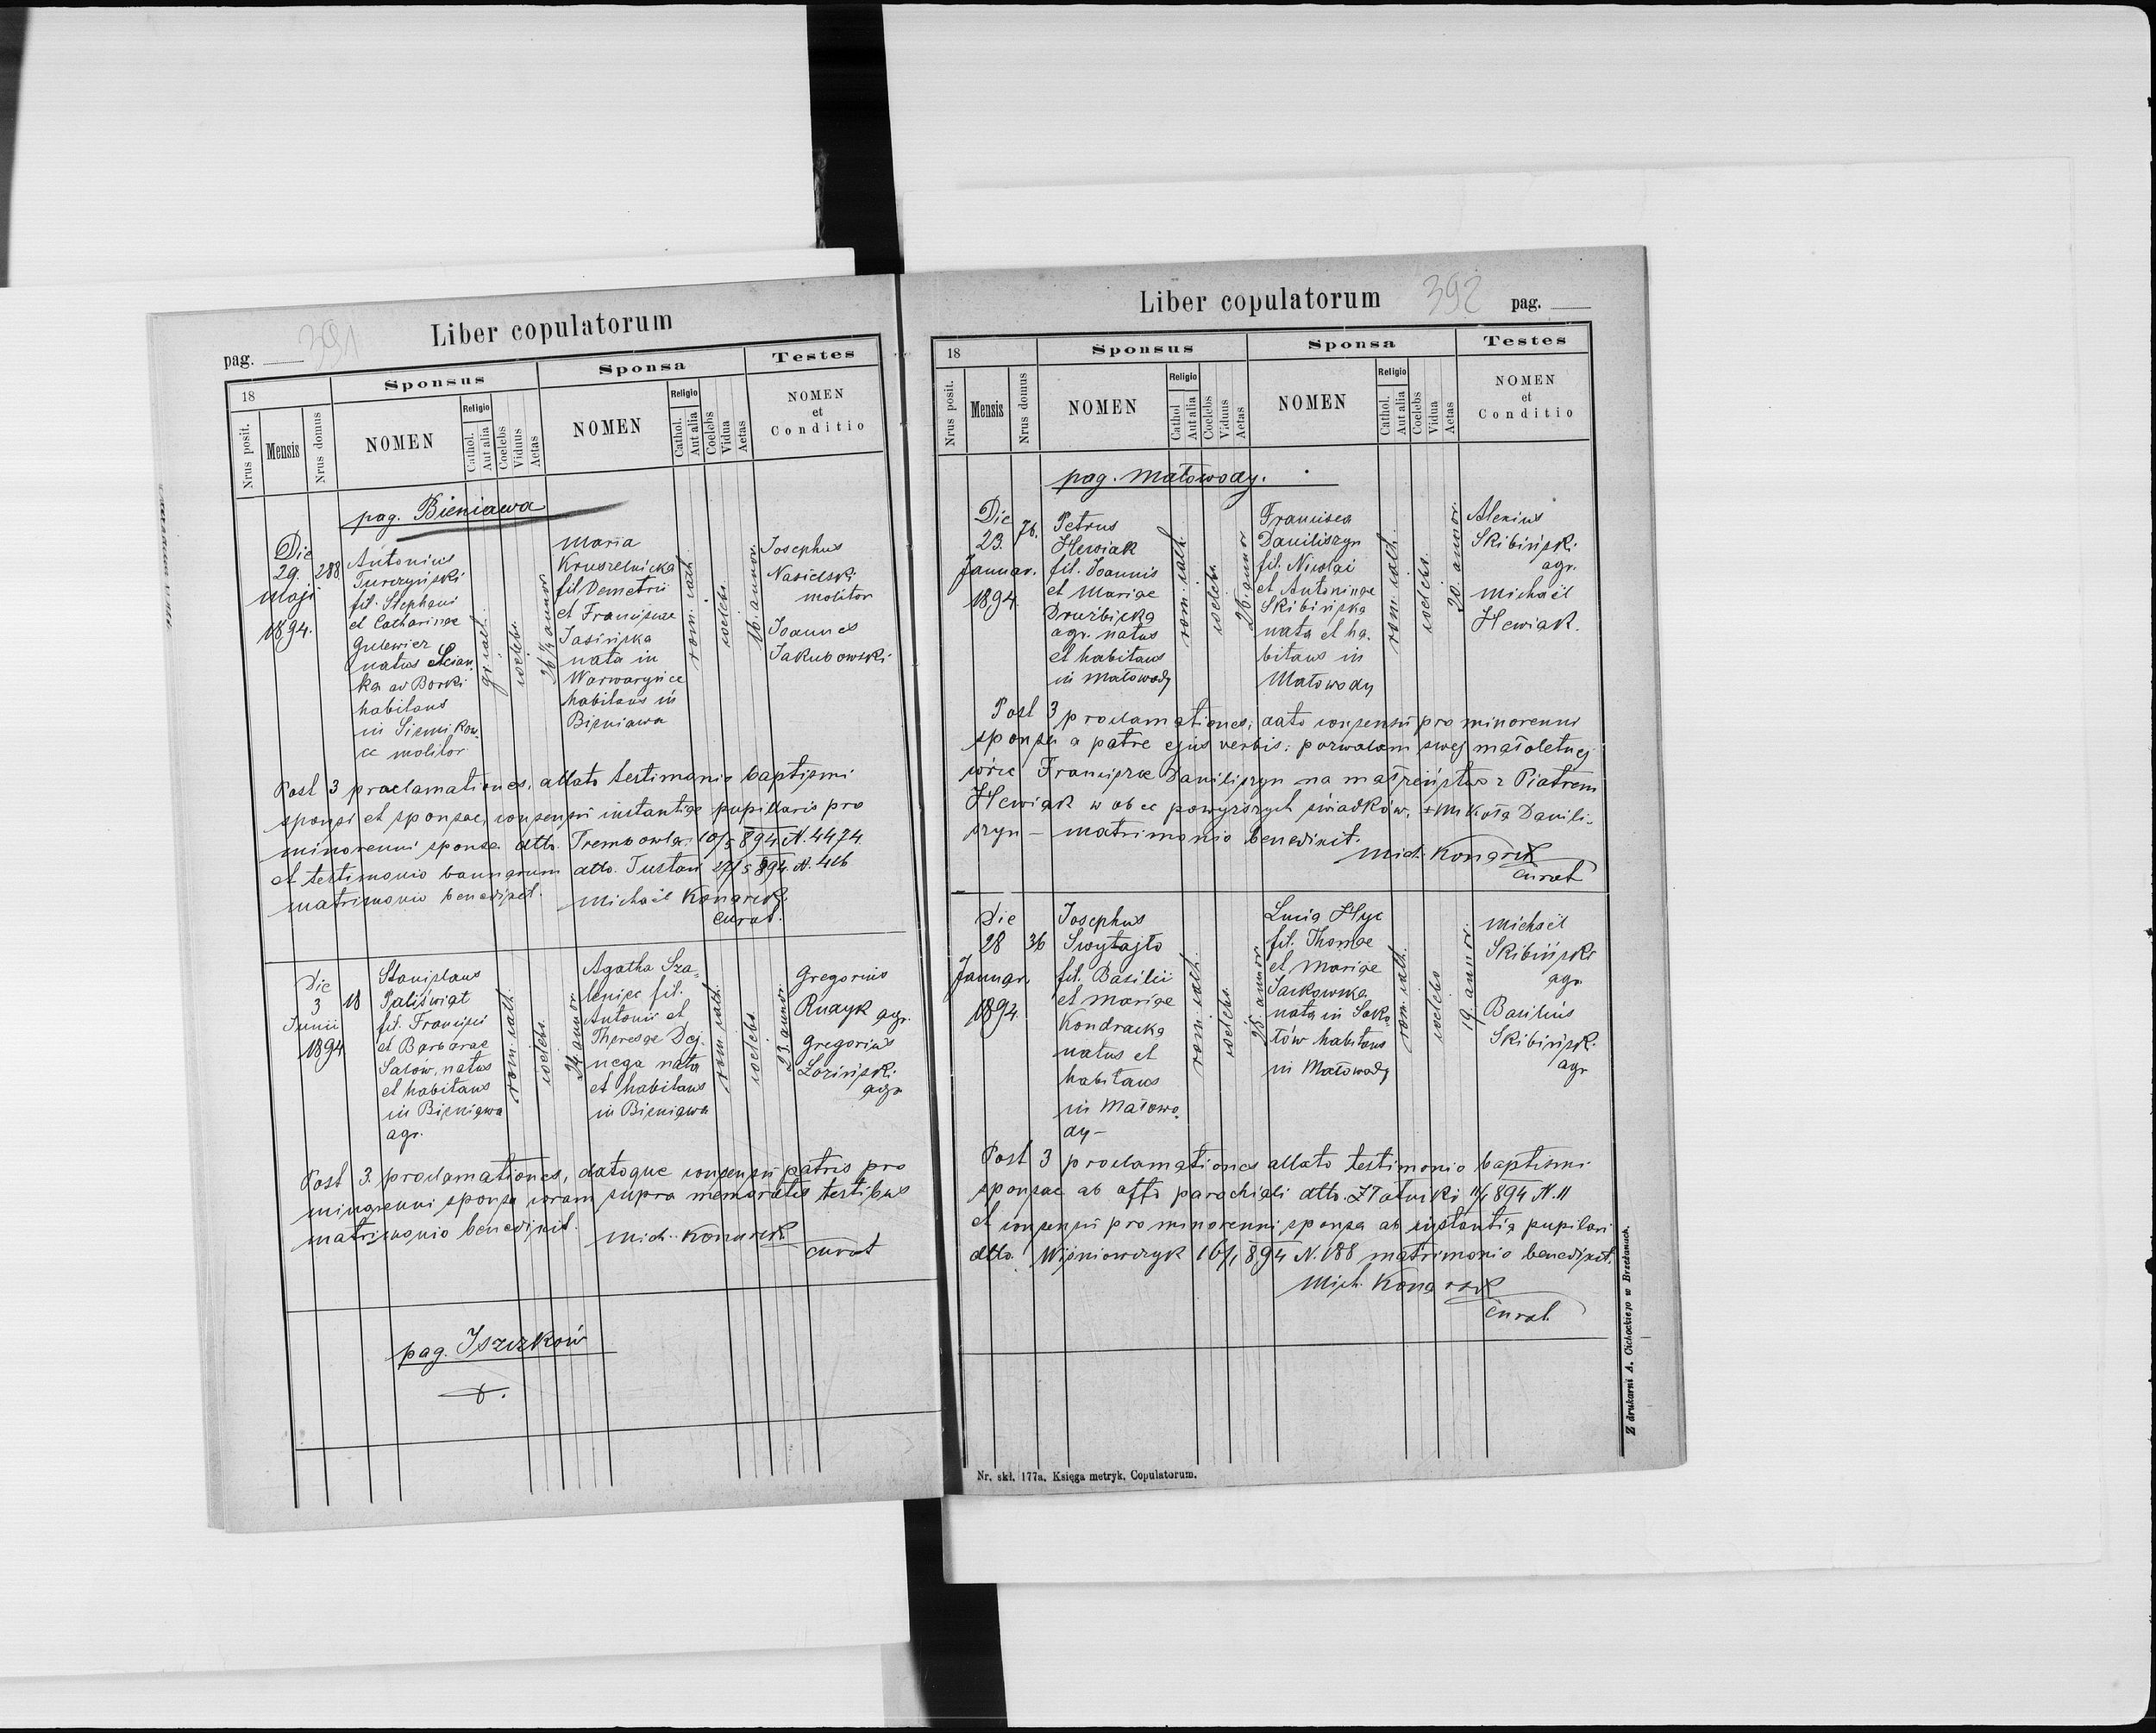 pag. 391
Liber copulatorum
18
Sponsus
Sponsa
Testes
Nrus posit.
Mensis
Nrus domus
NOMEN
Religio
Cathol.
Aut alia
Coelebs
Viduus
Aetas
NOMEN
Religio
Cathol.
Aut alia
Coelebs
Vidua
Aetas
NOMEN
et
Conditio
pag. Bieniawa
Die
29.
Maji
1894.
288
Antonius
Turczyński
fil. Stephani
et Catharinae
Gulewicz
natus
ka ad Borki
habitans
in Siemikow
ce molitor
gr. cath.
coelebs.
26 annor.
Maria
Kruszelnicka
fil Demetrii
et Franciscae
Jasińska
nata in
Warwaryńce
habitans in
Bieniawa
rom. cath.
coelebs.
16. annor.
Josephus
Nasielski
molitor
Joannes
Jakubowski
Post 3 proclamationes, allato testimonio baptismi
sponsi et sponsae, consensu instantiae pupillaris pro
minorenni sponsa ddto. Trembowla 10/5 894. N. 4474.
et testimonio bannorum ddto. Tustań 27/5 894. N. 426
matrimonio benedixit. Michaël Konarek
curat.
Die
3
Junii
1894
18
Stanislaus
Paliświat
fil. Francisci
et Barbarae
Sałów, natus
et habitans
in Bieniawa
agr.
rom. cath.
coelebs.
24 annor.
Agatha Sza-
leniec fil.
Antonii et
Theresae Dej
nega nata
et habitans
in Bieniawa
rom. cath.
coelebs.
23. annor.
Gregorius
Rudyk agr.
Gregorius
Łoziński.
agr
Post 3. proclamationes, datoque consensu patris pro
minorenni sponsa coram supra memoratis testibus
matrimonio benedixit. Mich. Konarek
curat
pag. Iszczków
Liber copulatorum
392 pag.
18
Sponsus
Sponsa
Testes
Nrus posit.
Mensis
Nrus domus
NOMEN
Religio
Cathol
Aut alia
Coelebs
Viduus
Aetas
NOMEN
Religio
Cathol.
Aut alia
Coelebs
Vidua
Aetas
NOMEN
et
Conditio
pag. Małowody.
Die
23.
Januar.
1894.
76.
Petrus
Hewiak
fil. Joannis
et Mariae
Drużbicka
agr. natus
et habitans
in Małowody
rom. cath
coelebs.
26. annor
Francisca
Daniliszyn
fil. Nicolai
et Antoninae
Skibińska
nata et ha.
bitans in
Małowody
rom. cath.
coelebs.
20. annor.
Alexius
Skibiński.
agr.
Michaël
Hewiak.
Post 3 proclamationes, dato consensu pro minorenni
sponsa a patre ejus verbis: pozwalam swej małoletniej
córce Franciszce Daniliszyn na małżeństwo z Piotrem
Hewiak w obec powyższych świadków. + Mikoła Danili-
szyn – matrimonio benedixit.
Mich. Konarek
curat
Die
28
Januar.
1894.
36
Josephus
Swytajło
fil. Basilii
et Mariae
Kondracka
natus et
habitans
in Małowo.
dy –
rom. cath.
coelebs.
25. annor.
Lucia Hyc
fil. Thomae
et Mariae
nata in Soko
łów habitans
in Małowody
rom. cath.
coelebs
19. annor.
Michaël
Skibiński
agr
Basilius
Skibińsk.
agr
Post 3 proclamationes allato testimonio baptismi
sponsae ab offo parochiali ddto. Złotniki 11/1 894 N. 11
et consensu pro minorenni sponsa ab instantia pupilari
ddto. Wiśniowczyk 16/1 894 N. 188 matrimonio benedixit.
Mich. Konarek
curat.
Nr. skł. 177a. Księga metryk. Copulatorum.
Z drukarni A. Cichockiego w Brzeżanach.